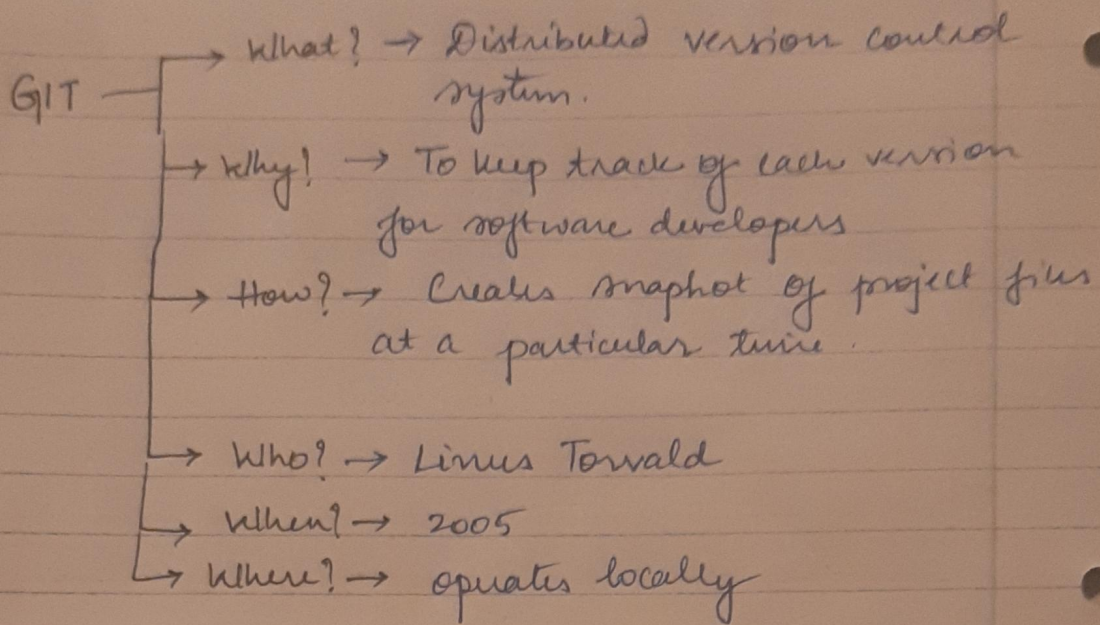 GIT → What? → Distributed version control
system.
→ Why? → To keep track of each version
for software developers
→ How? → Creates snaphot of project files
at a particular time.
→ Who? → Linus Torvald
→ When? → 2005
→ Where? → operates locally